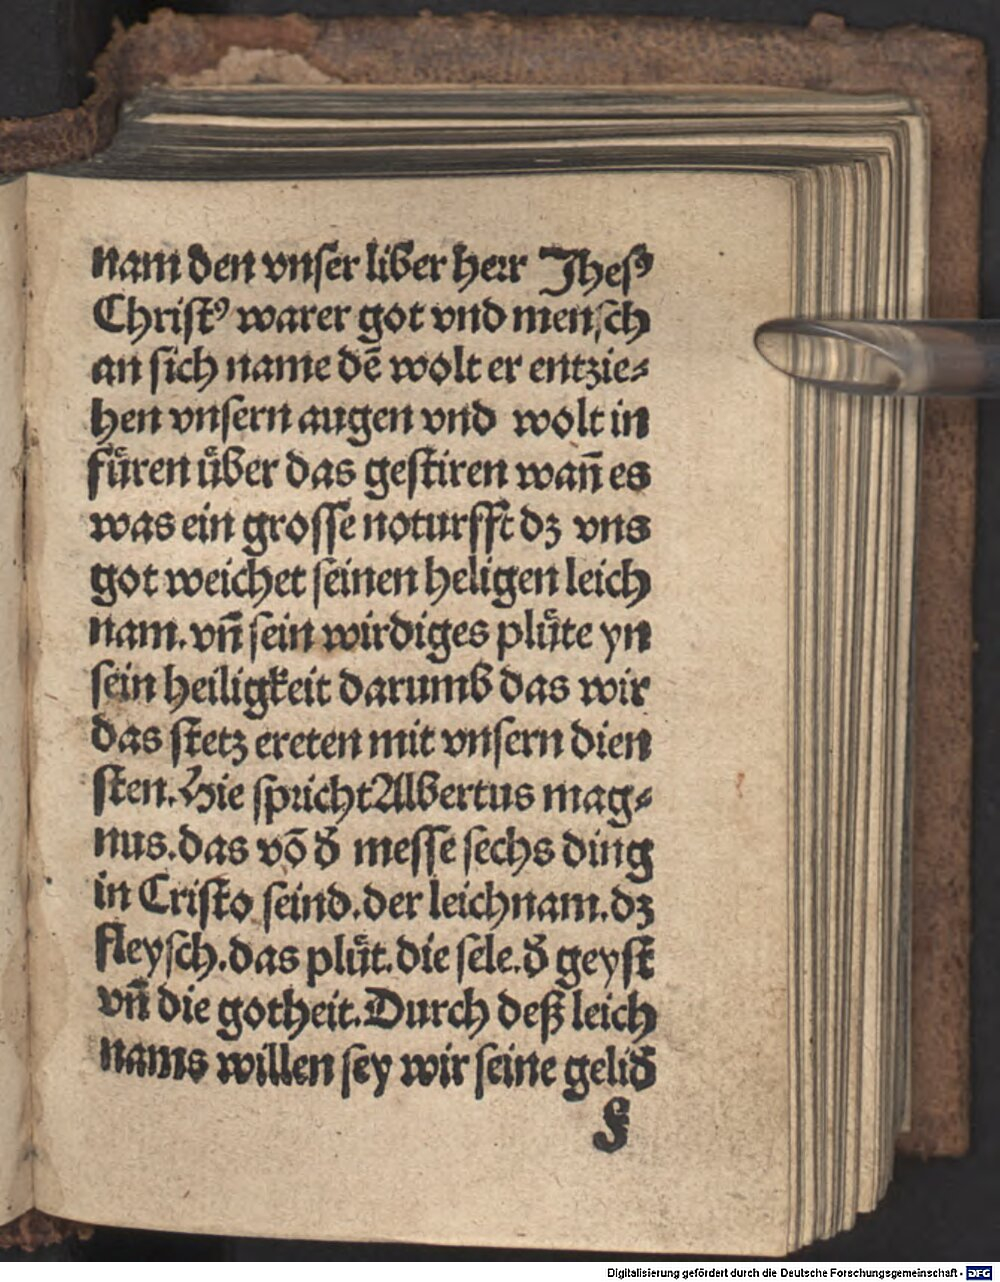 nam den vnser liber herr Jhesꝰ
Christꝰ warer got vnd mensch
an sich name dē wolt er entzie⸗
hen vnsern augen vnd wolt in
fuͤren uͤber das gestiren wan̄ es
was ein grosse noturfft dz vns
got weichet seinen heligen leich
nam. vn̄ sein wirdiges pluͤte yn
sein heiligkeit darumb das wir
das stetz ereten mit vnsern dien
sten. Hie spricht Albertus mag⸗
nus. das vō đ messe sechs ding
in Cristo seind. der leichnam. dz
fleysch. das pluͤt. die sele. đ geyst
vn̄ die gotheit. Durch deß leich
nams willen sey wir seine gelid̄
f
Digitalisierung gefördert durch die Deutsche Forschungsgemeinschaft - DFG